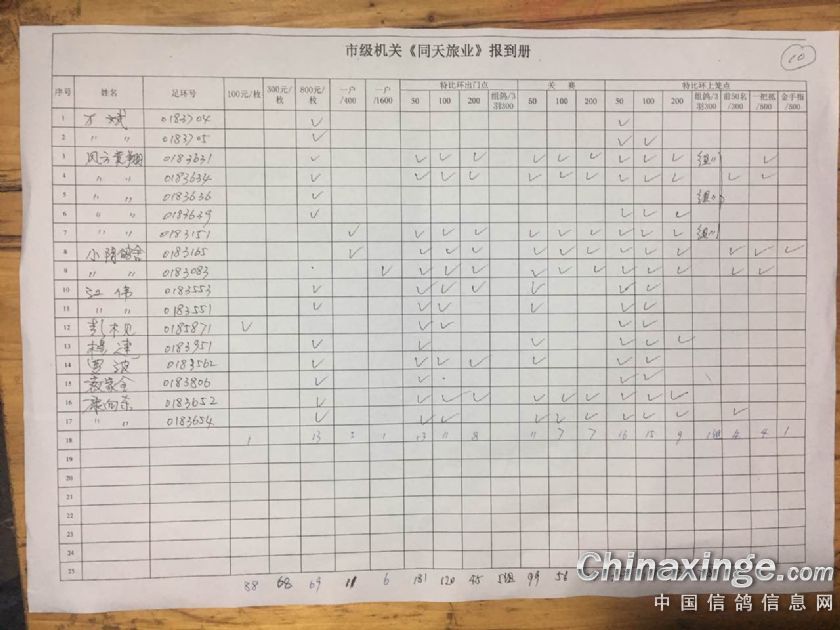 市级机关《同天旅业》报到册
20
序号 姓名 足环号 100元/枚 300元/枚 800元/枚 一户/400 一户/1600 特比环出门点 关赛 特比环上笼点
50 100 200 组鸽/3羽300 50 100 200 50 100 200 组鸽/3羽300 前50名/300 一把抓/500 金手指/500
1 0183704 ✓ ✓
2 〃 〃 0183705 ✓ ✓ ✓
3 0183631 ✓ ✓ ✓ ✓ ✓ ✓ ✓ ✓ ✓ ✓ ✓
4 〃 〃 0183634 ✓ ✓ ✓ ✓ ✓ ✓ ✓ ✓ ✓ ✓ ✓ ✓
5 〃 〃 0183636 ✓
6 〃 〃 0183639 ✓ ✓ ✓ ✓
7 〃 〃 0183151 ✓ ✓ ✓ ✓ ✓ ✓ ✓ ✓ ✓ ✓
8 0183165 ✓ ✓ ✓ ✓ ✓ ✓ ✓ ✓ ✓ ✓ ✓ ✓ ✓
9 〃 〃 0183083 ✓ ✓ ✓ ✓ ✓ ✓ ✓ ✓ ✓ ✓ ✓ ✓
10 江伟 0183553 ✓ ✓ ✓ ✓ ✓ ✓ ✓
11 〃 〃 0183551 ✓ ✓ ✓ ✓ ✓ ✓
12 0185871 ✓ ✓ ✓ ✓ ✓
13 0183951 ✓ ✓ ✓ ✓ ✓ ✓ ✓
14 罗波 0183562 ✓ ✓ ✓ ✓ ✓ ✓ ✓
15 0183806 ✓ ✓ ✓ ✓
16 0183652 ✓ ✓ ✓ ✓ ✓ ✓ ✓ ✓ ✓ ✓
17 〃 〃 0183654 ✓ ✓ ✓ ✓ ✓ ✓ ✓ ✓ ✓ ✓
18 1 13 3 1 13 11 8 11 7 7 16 15 9 4 4 1
19
20
21
22
23
24
25
88 68 69 11 6 181 120 45 5组 99 56
Chinaxinge.com
中国信鸽信息网